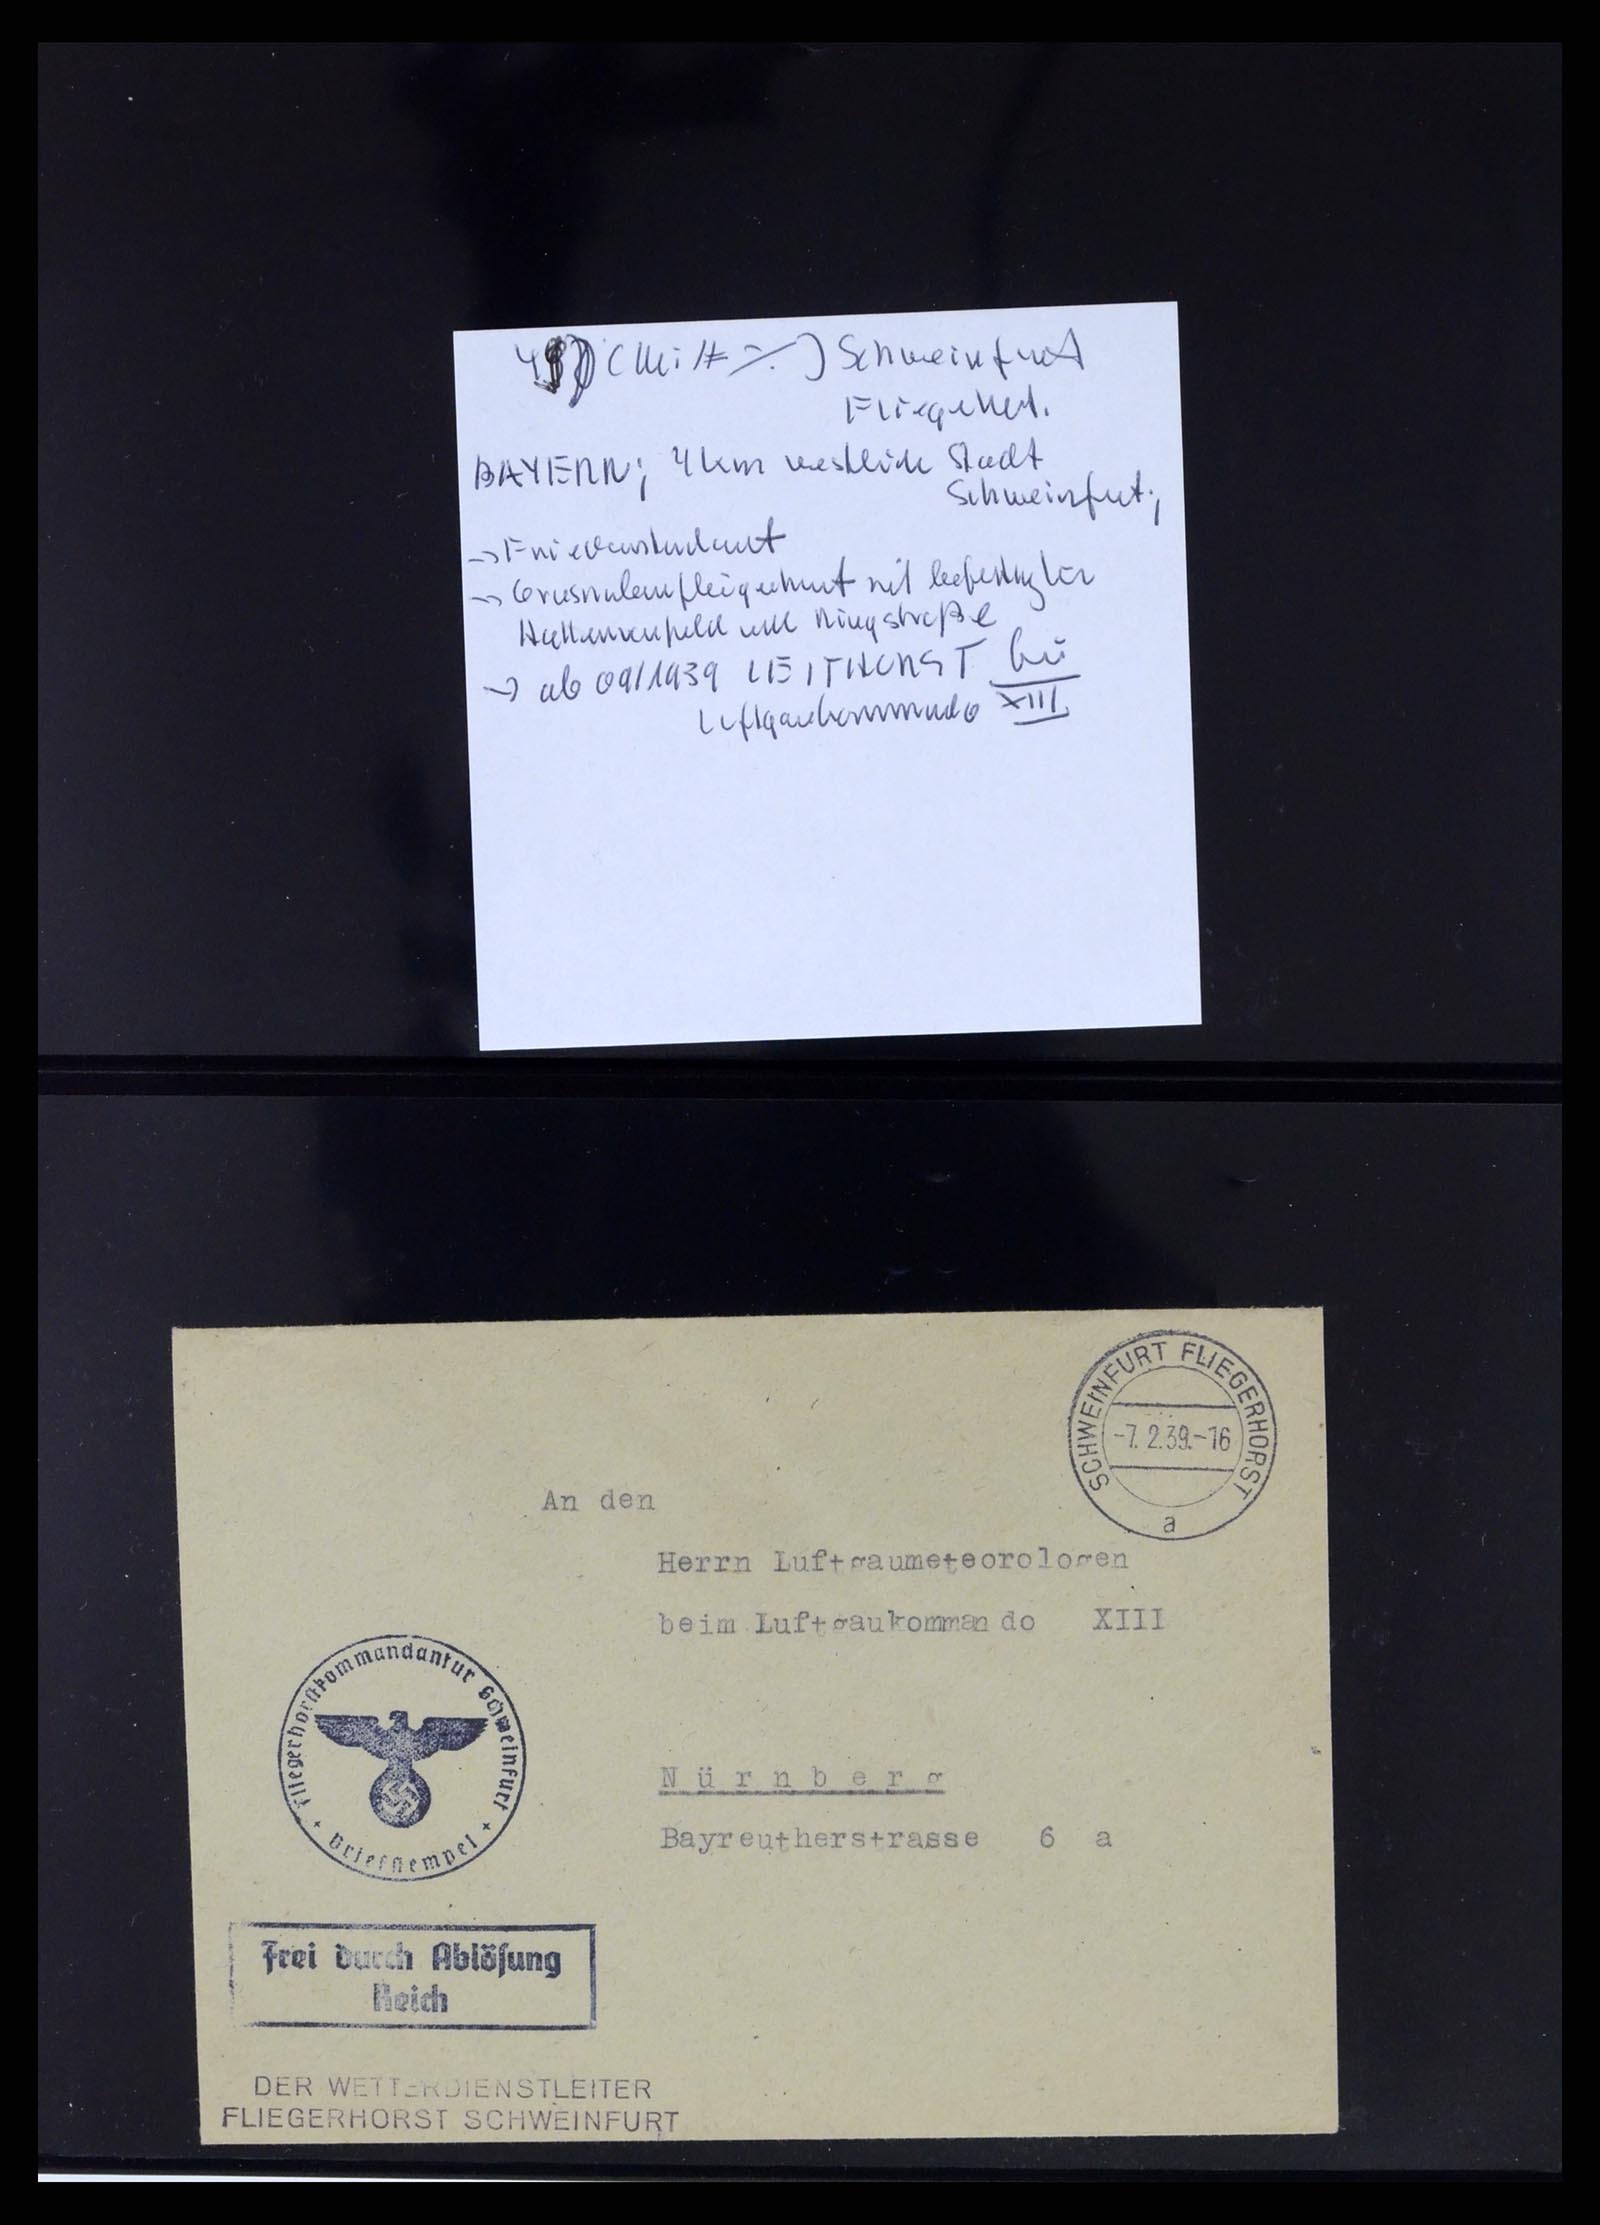 Schweinfurt
Fliegerhorst
BAYERN; 4 km westlich Stadt
Schweinfurt;
→ Friedensstandort
→ mit befestigter
und Ringstraße
→ ab 09/1939 LEITHORST bei
Luftgaukommando XIII
SCHWEINFURT FLIEGERHORST
-7. 2.39.-16
a
An den
Herrn Luftgaumeteorologen
beim Luftgaukommando XIII
Nürnberg
Bayreutherstrasse 6 a
Fliegerhorstkommandantur Schweinfurt
Briefstempel
Frei durch Ablösung
Reich
DER WETTERDIENSTLEITER
FLIEGERHORST SCHWEINFURT